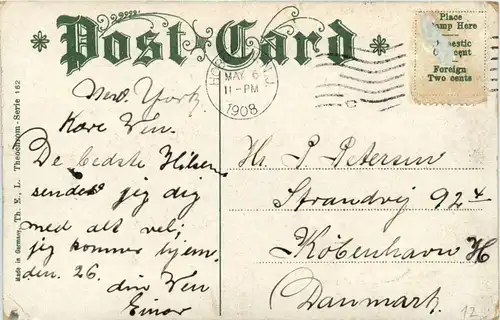 Post Card
Place
Stamp Here
Domestic
One cent
Foreign
Two cents
HOBOKEN, N.J.
MAY 6
11-PM
1908
New York
Kære Ven.
De bedste Hilsen
sender jeg dig
med alt vel;
jeg kommer hjem.
den. 26.
din Ven
Einar
Hr. P. Petersen
Strandvej 92 4
København H
Danmark.
12
Made in Germany. Th. E. L. Theochrom-Serie 162